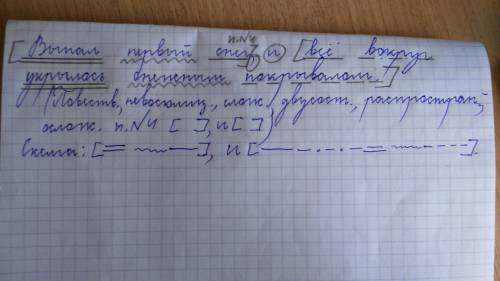 п.№4
[Выпал первый снег], и [всё вокруг
укрылось снежным покрывалом.]
(Повеств., невосклиц., слож., двусост., распространён.,
ослож. п.№4 [ ], и [ ])
Схема: [ ], и [ ].